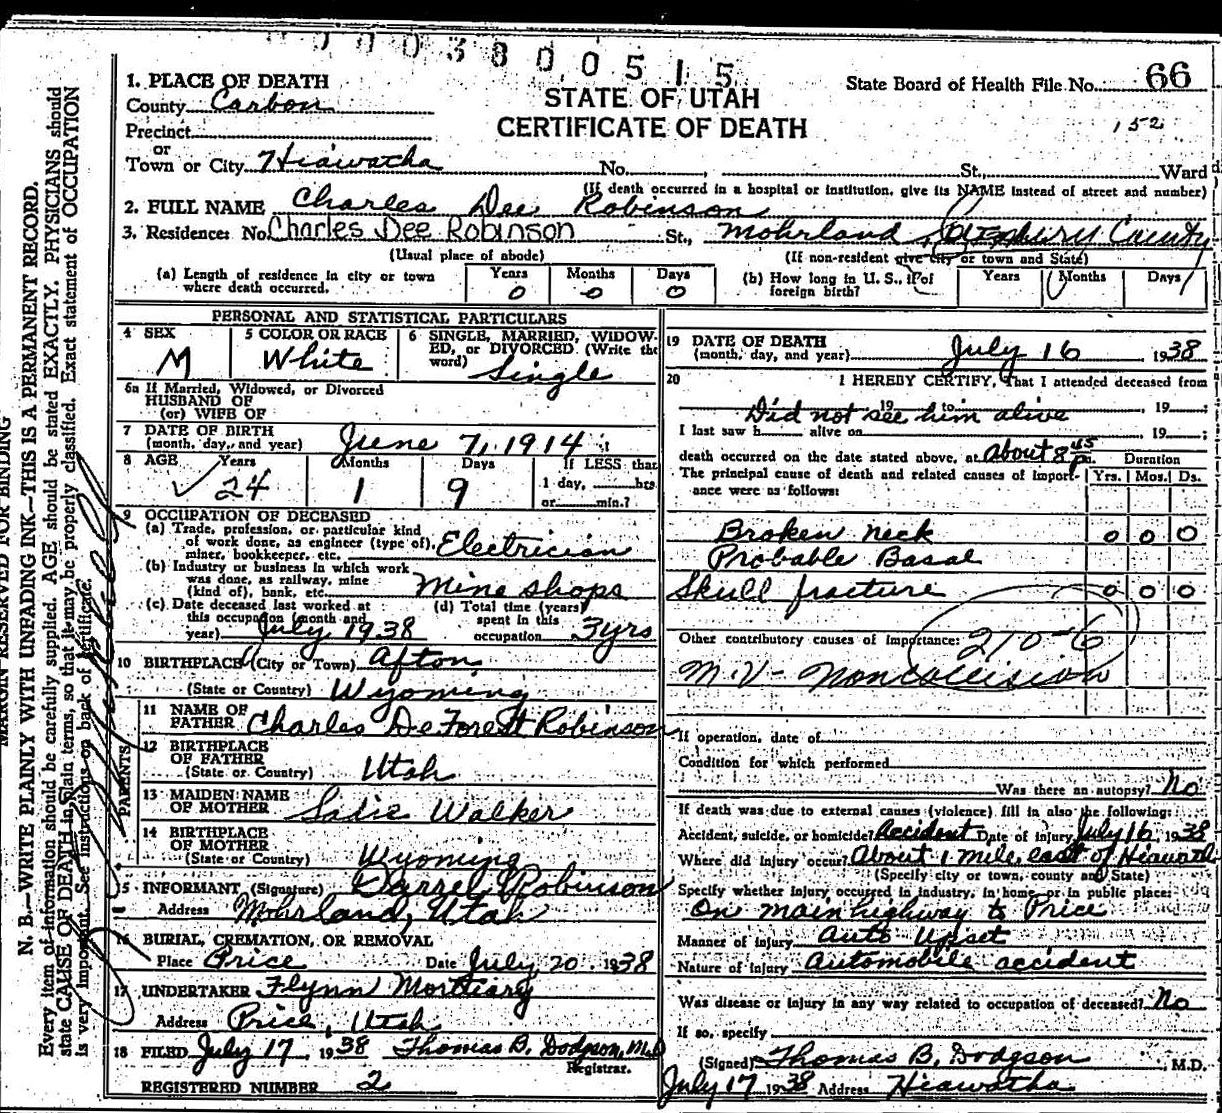 0003800515
1. PLACE OF DEATH
County Carbon
Precinct
or
Town or City Hiawatha No. St., Ward
STATE OF UTAH
CERTIFICATE OF DEATH
State Board of Health File No. 66
152
(If death occurred in a hospital or institution, give its NAME instead of street and number)
2. FULL NAME Charles Dee Robinson
3. Residence: No. Charles Dee Robinson St., Mohrland, Emery County
(Usual place of abode) (If non-resident give city or town and State)
(a) Length of residence in city or town where death occurred. Years 0 Months 0 Days 0
(b) How long in U. S., if of foreign birth? Years Months Days
PERSONAL AND STATISTICAL PARTICULARS
4 SEX M
5 COLOR OR RACE White
6 SINGLE, MARRIED, WIDOWED, or DIVORCED (Write the word) Single
6a If Married, Widowed, or Divorced
HUSBAND OF
(or) WIFE OF
7 DATE OF BIRTH
(month, day, and year) June 7, 1914
8 AGE Years 24 Months 1 Days 9 If LESS than 1 day, hrs. or min.?
9 OCCUPATION OF DECEASED
(a) Trade, profession, or particular kind of work done, as engineer (type of), miner, bookkeeper, etc. Electrician
(b) Industry or business in which work was done, as railway, mine (kind of), bank, etc. Mine shops
(c) Date deceased last worked at this occupation (month and year) July 1938
(d) Total time (years) spent in this occupation 3 yrs
10 BIRTHPLACE (City or Town) Afton
(State or Country) Wyoming
PARENTS
11 NAME OF FATHER Charles DeForest Robinson
12 BIRTHPLACE OF FATHER
(State or Country) Utah
13 MAIDEN NAME OF MOTHER Sadie Walker
14 BIRTHPLACE OF MOTHER
(State or Country) Wyoming
15 INFORMANT (Signature) Darrel Robinson
Address Mohrland, Utah
16 BURIAL, CREMATION, OR REMOVAL
Place Price Date July 20, 1938
17 UNDERTAKER Flynn Mortuary
Address Price, Utah
18 FILED July 17, 1938 Thomas B. Dodgson, M.D
Registrar.
REGISTERED NUMBER 2
19 DATE OF DEATH
(month, day, and year) July 16 1938
20 I HEREBY CERTIFY, That I attended deceased from
19 to , 19 ;
Did not see him alive
I last saw h alive on , 19 ;
death occurred on the date stated above, at About 8 45 pm. Duration
The principal cause of death and related causes of importance were as follows: Yrs. Mos. Ds.
Broken neck 0 0 0
Probable Basal
Skull fracture 0 0 0
Other contributory causes of importance: 210-6
M.V- Noncollision
If operation, date of
Condition for which performed
Was there an autopsy? No
If death was due to external causes (violence) fill in also the following:
Accident, suicide, or homicide? Accident Date of injury July 16 1938
Where did injury occur? About 1 mile east of Hiawath
(Specify city or town, county and State)
Specify whether injury occurred in industry, in home, or in public place:
On main highway to Price
Manner of injury Auto Upset
Nature of injury Automobile accident
Was disease or injury in any way related to occupation of deceased? No
If so, specify
(Signed) Thomas B. Dodgson, M.D.
July 17 1938 Address Hiawatha
MARGIN RESERVED FOR BINDING
N. B.—WRITE PLAINLY WITH UNFADING INK—THIS IS A PERMANENT RECORD.
Every item of information should be carefully supplied. AGE should be stated EXACTLY. PHYSICIANS should
state CAUSE OF DEATH in plain terms, so that it may be properly classified. Exact statement of OCCUPATION
is very important. See instructions on back of certificate.